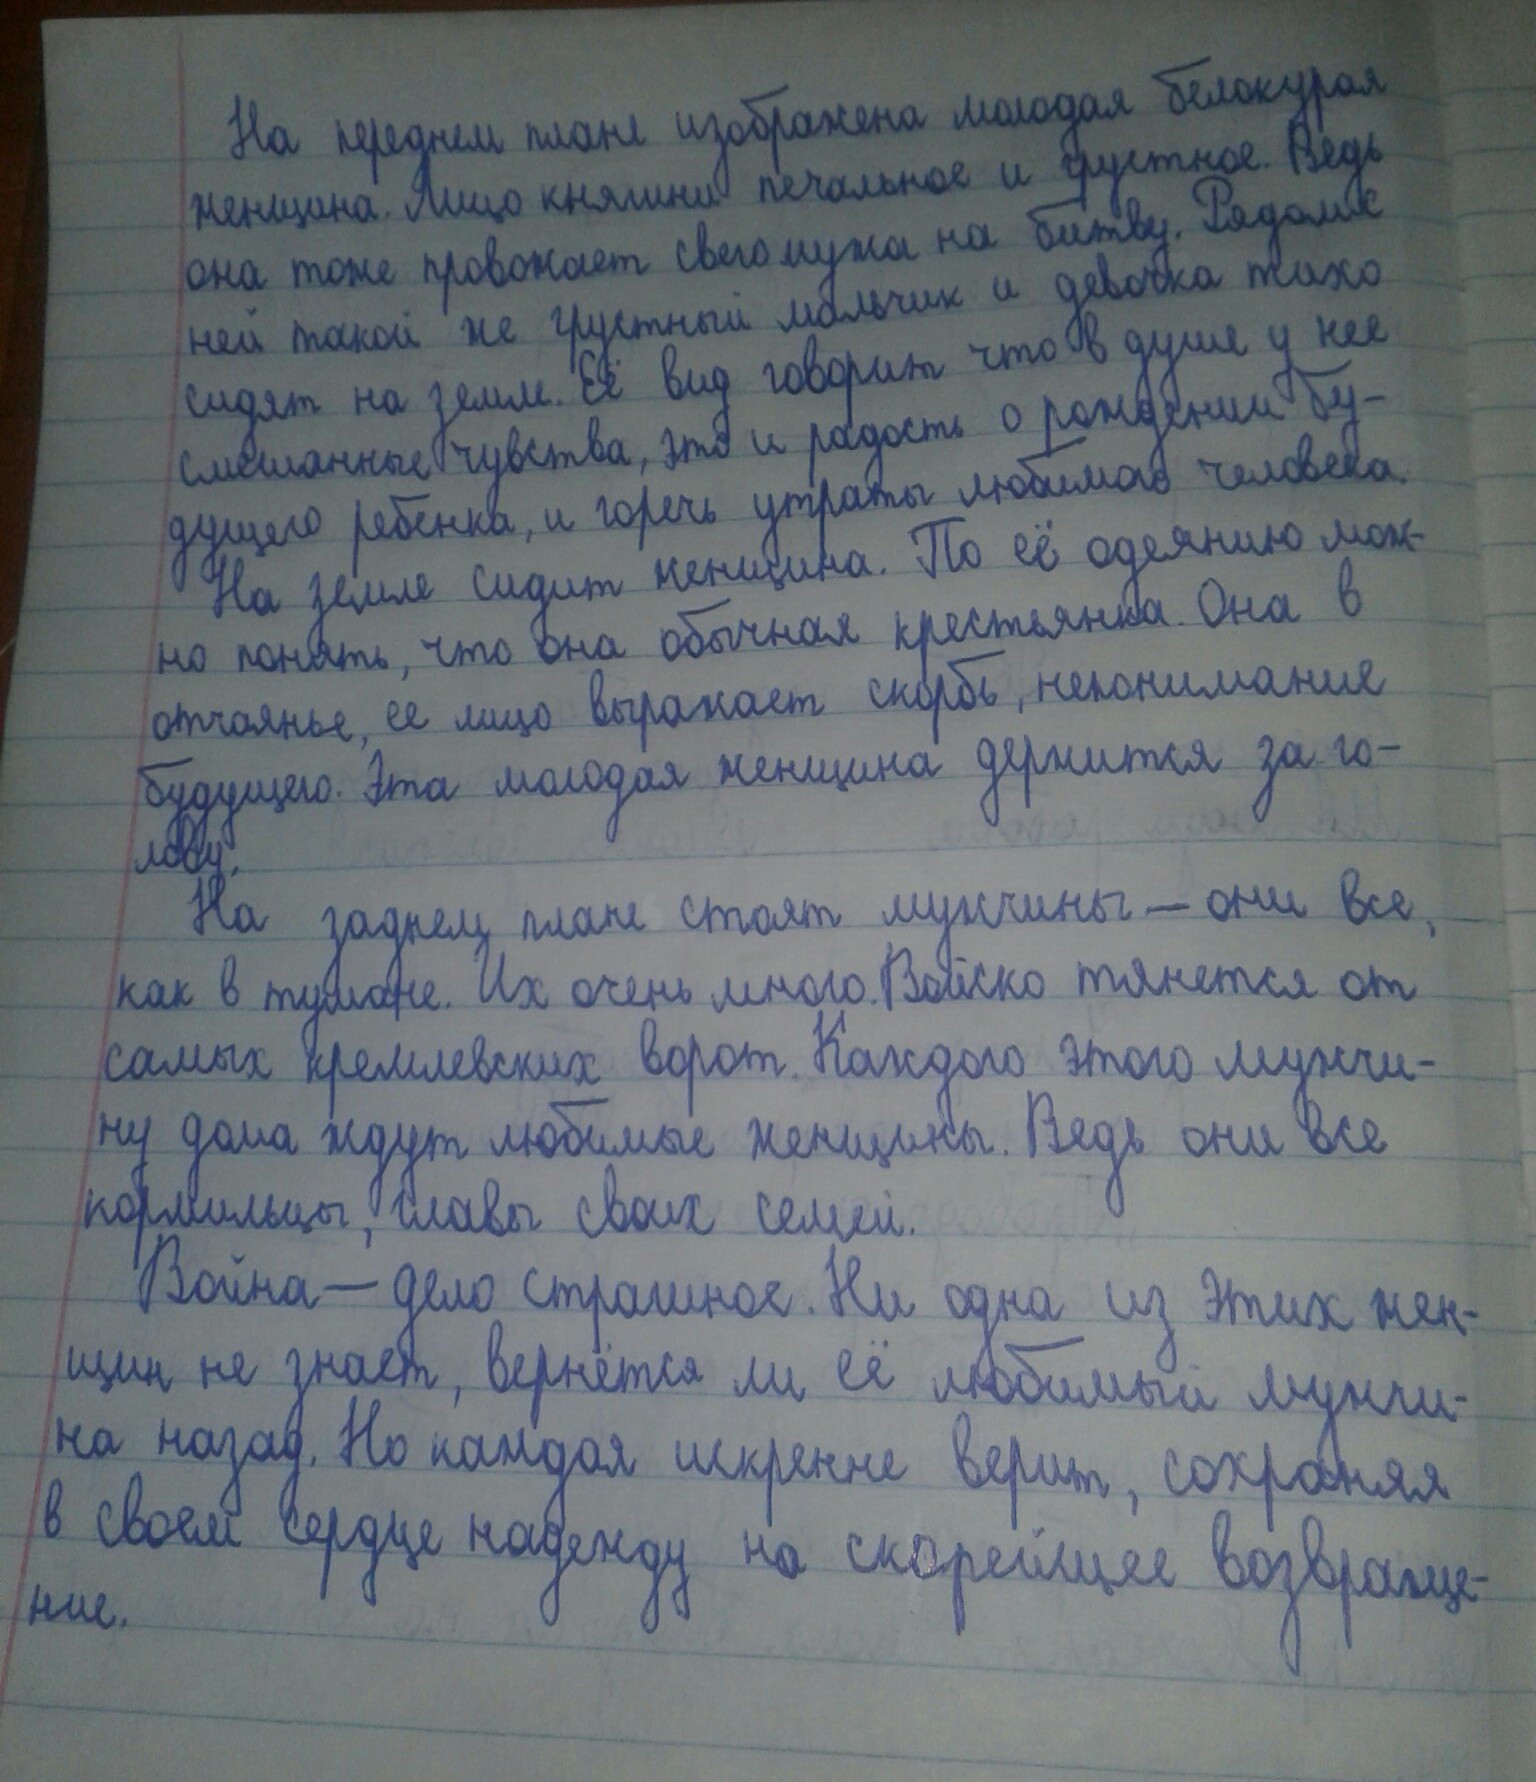 На переднем плане изображена молодая белокурая
женщина. Лицо княгини печальное и грустное. Ведь
она тоже провожает свего мужа на битву. Рядом с
ней такой же грустный мальчик и девочка тихо
сидят на земле. Её вид говорит что в душе у нее
смешанные чувства, это и радость о рождении бу-
дущего ребенка, и горечь утраты любимого человека.
На земле сидит женщина. По её одеянию мож-
но понять, что она обычная крестьянка. Она в
отчаянье, ее лицо выражает скорбь, непонимание
будущего. Эта молодая женщина держится за го-
лову.
На заднем плане стоят мужчины — они все,
как в тумане. Их очень много. Войско тянется от
самых кремлевских ворот. Каждого этого мужчи-
ну дома ждут любимые женщины. Ведь они все
кормильцы, главы своих семей.
Война — дело страшное. Ни одна из этих жен-
щин не знает, вернётся ли её любимый мужчи-
на назад. Но каждая искренне верит, сохраняя
в своем сердце надежду на скорейшее возвраще-
ние.